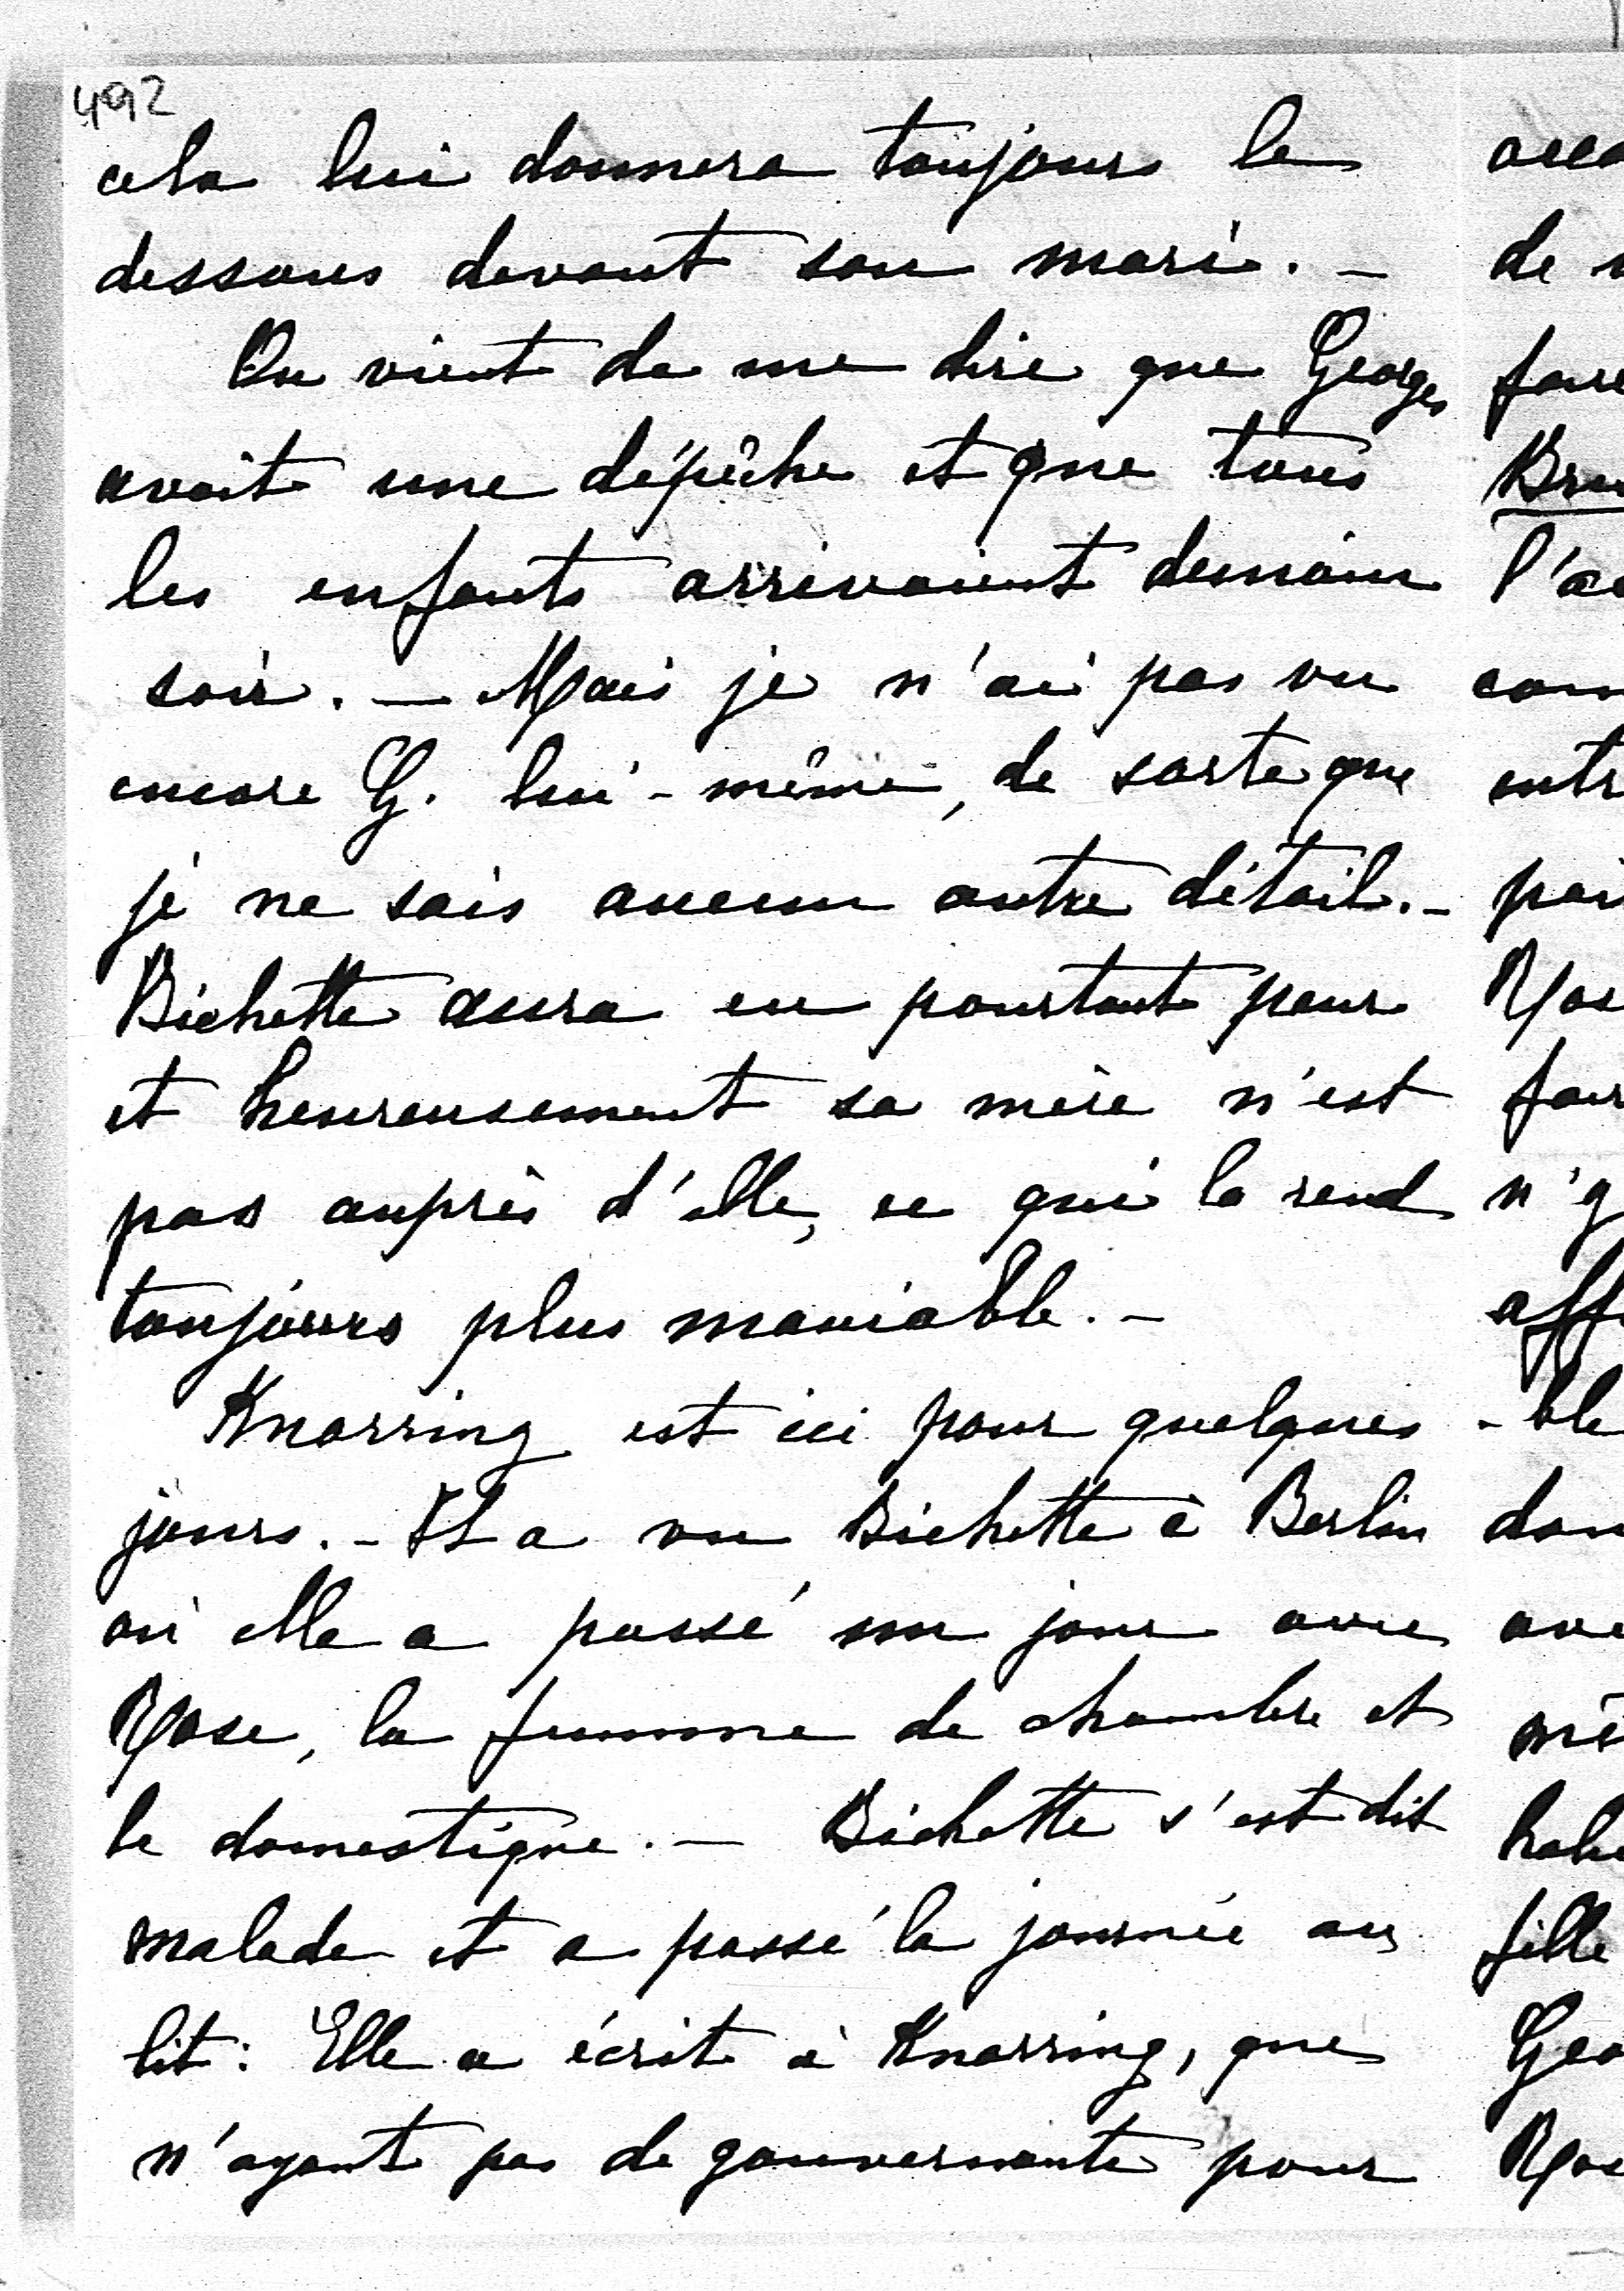 492
cela lui donnera toujours le
dessous devant son mari. –
On vient de me dire que Georges
avait une dépêche et que tous
les enfants arrivaient demain
soir. – Mais je n'ai pas vu
encore G. lui-même, de sorte que
je ne sais aucun autre détail. –
Bichette aura eu pourtant peur
et heureusement sa mère n'est
pas auprès d'elle, ce qui la rend
toujours plus maniable. –
Knorring est ici pour quelques
jours. – Il a vu Bichette à Berlin
où elle a passé un jour avec
Rose, la femme de chambre et
le domestique. – Bichette s'est dit
malade et a passé la journée au
lit: Elle a écrit à Knorring, que
n'ayant pas de gouvernante pour
de
l'a
n'y
-ble
fille